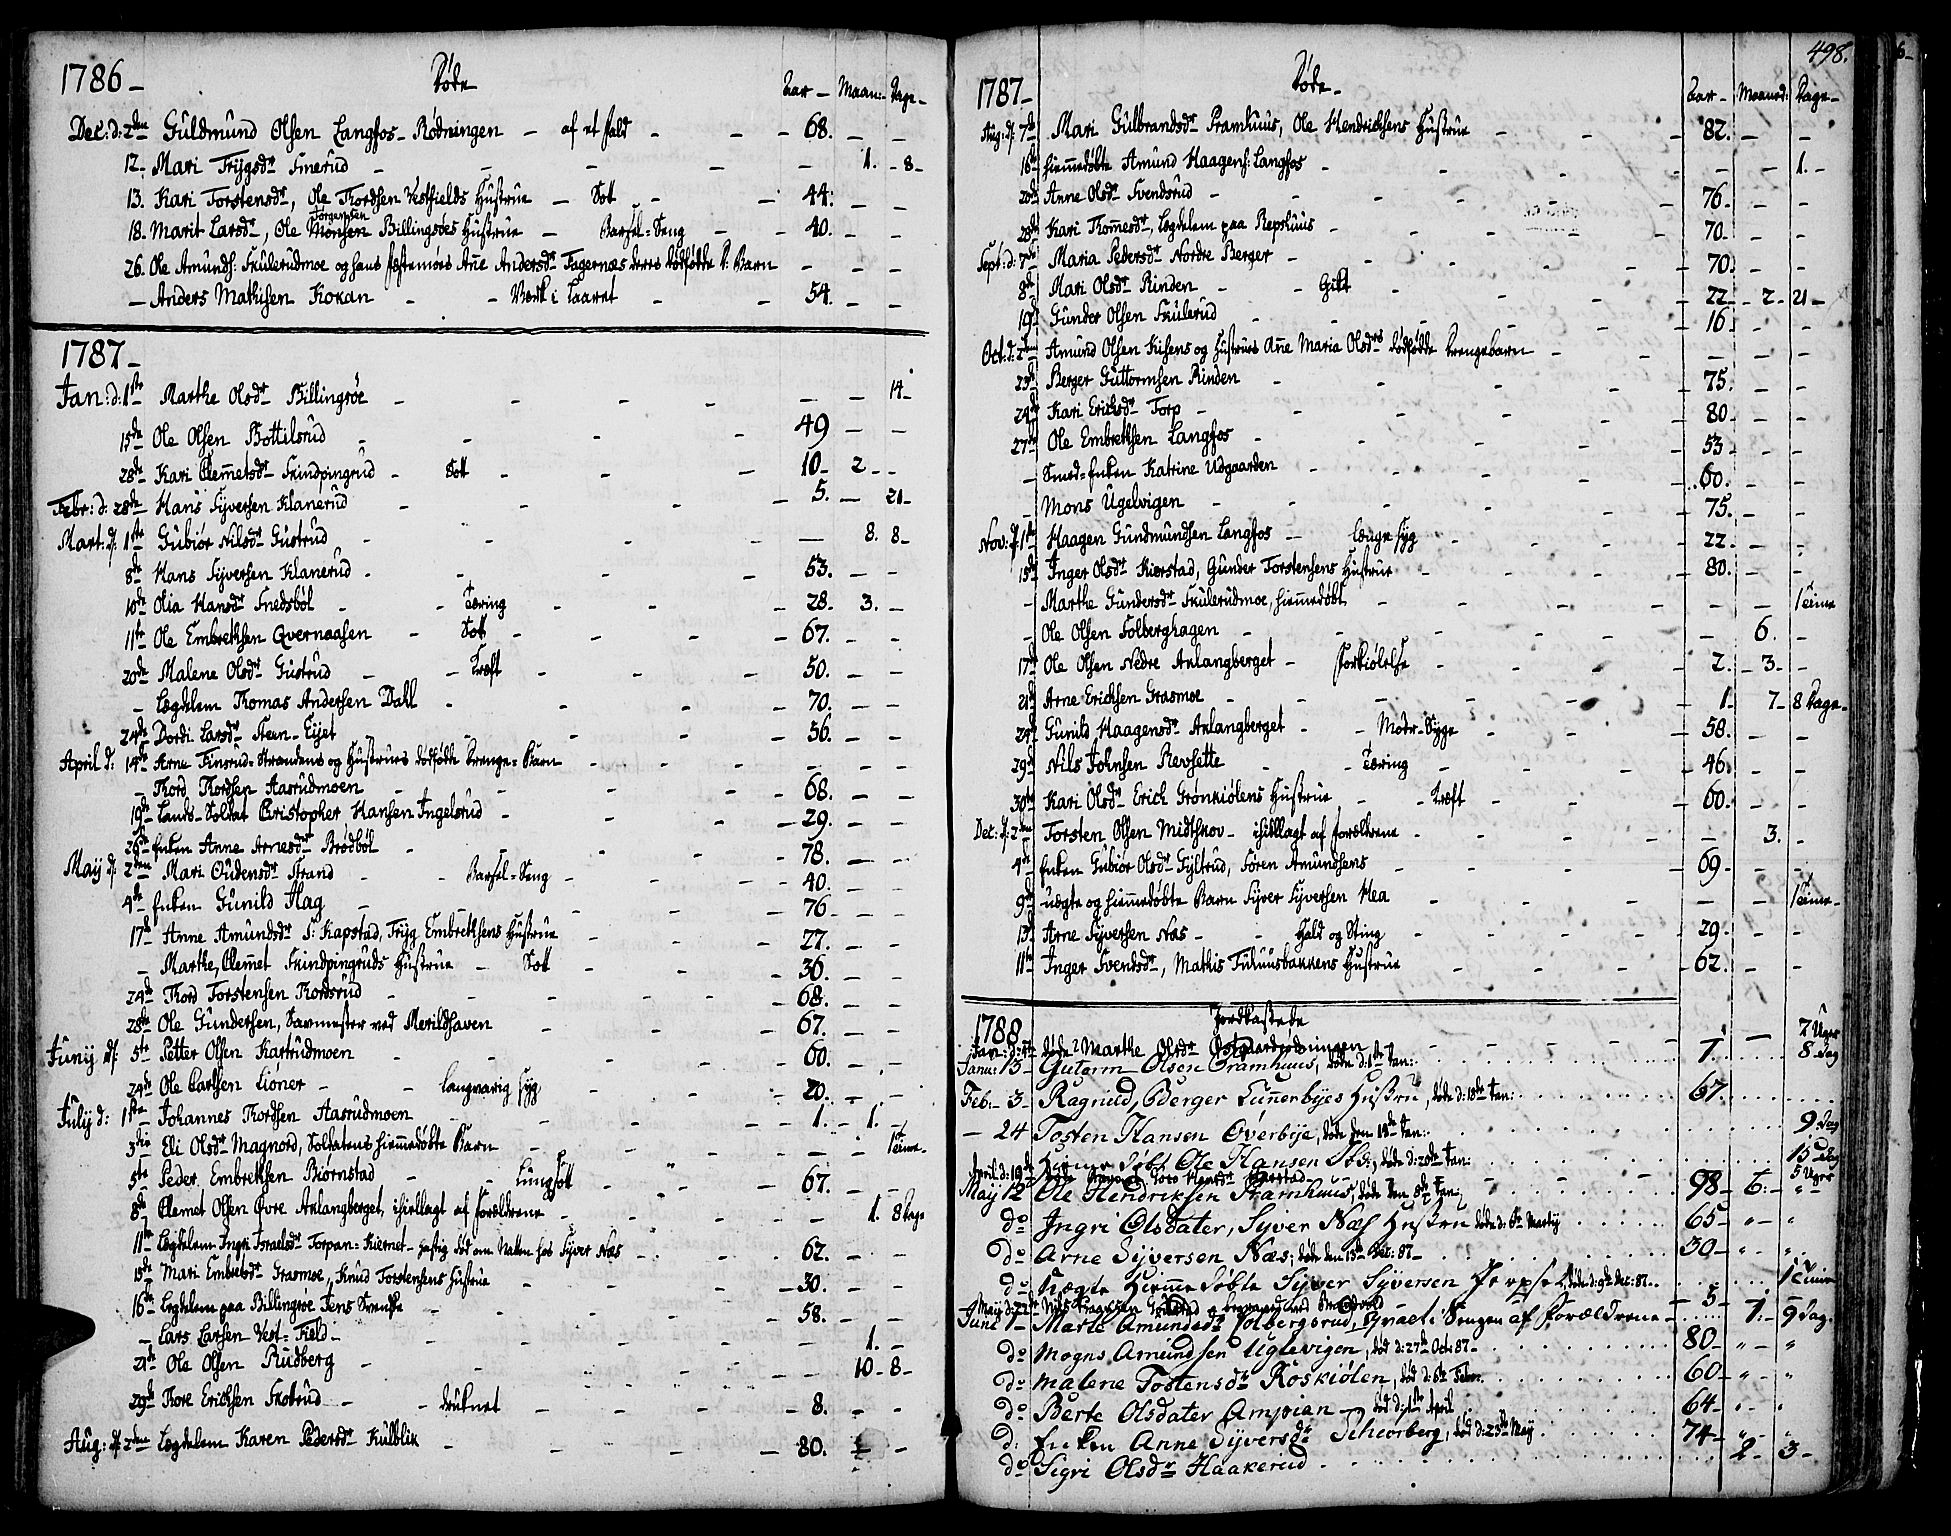 1786 – Døde Aar – Maan: – Dage –
Dec: d: 2den Guldmund Olsen Langfos-Rødningen – af et fald – 68. – –
12. Mari Trygsdr Finerud – – 1. – 8 –
13. Kari Torstensdr, Ole Thordsen Vestfields Hustrue – Sott – 44. – –
18. Marit Larsdr, Ole Monsen Jørgensen Billingsøes Hustrue – Barsel-Seng – 40. – –
26. Ole Amunds: Skulerudmoe og hans fæstemøes Añe Andersdr Fagernæs deres dødfødte P: Barn – – –
– Anders Mathisen Kokan – Værk i Laaret – 54. – –
1787 –
Jan: d: 1ste Marthe Olsdr Billingsøe – – – 14 –
15de Ole Olsen Bottilsrud – 49 – –
28de Kari Clemetsdr Skindpingrud – Sott – 10 – 2 – –
Febr: d: 28de Hans Syversen Klanerud – 5. – 21 –
Mart: d: 1ste Gubiør Nilsdr Gustrud – – 8. 8 –
8de Hans Syversen Klanerud – 53. – –
10de Olia Hansdr Snedsbøl – Tæring – 28. 3. –
11te Ole Embrethsen Qvernaasen – Sott – 67. – –
20de Malene Olsdr Gustrud – Kræft – 50. – –
– Lægdelem Thomas Andersen Dall – 70. – –
24de Dordi Larsdr Steen-Eyet – 56. – –
April d: 14de Arne Finsrud-Strandens og Hustrues dødfødte Drenge-Barn – – –
– Thord Thordsen Aasrudmoen – 68. – –
19de Lands-Soldat Christopher Hansen Ingelsrud – 29. – –
26de Enken Anne Arnesdr Brødbøl – 78. – –
May d: 2den Mari Oudensdr Strand – Barsel-Seng – 40. – –
4de Enken Gunild Hag – 76 – – –
17de Anne Amundsdr S: Kapstad, Tryg Embrethsens Hustrue – 27. – –
– Marthe, Clemet Skindpingruds Hustrue – Sott – 36. – –
24de Thord Torstensen Thordsrud – 68. – –
28de Ole Gundersen, Savmester ved Merildhaven – 67. – –
Juny d: 5te Petter Olsen Kastrudmoen – 60. – –
29de Ole Carlsen Liøner – langvarig syg – 20. – –
July d: 1ste Johannes Thordsen Aasrudmoen – 1. – 1. –
3die Eli Olsdr Magnord, Soldatens hiemedøbte Barn – – – 1 Time –
5te Peder Embrethsen Biørnstad – Lungsott – 67. – –
8de Clemet Olsen Øvre Aklangberget, ihiellagt af Forældrene – – 1. 8 Dage
11te Lægdelem Ingri Israelsdr Torpan-Kiernet – hastig død om Natten hos Syver Næs – 62. – –
13de Mari Embretsdr Grasmoe, Knud Torstensens Hustrue – 30. – –
16de Lægdelem paa Billingsøe Jens Svenske – 58. – –
– Lars Larsen Vest-Field – – 1. –
21de Ole Olsen Rudberg – – 10 – 8 –
29de Thore Erichsen Skotrud – druknet – 8. – –
Aug: d: 2den Lægdelem Karen Pedersdr Kulblik – 80. – –
498.
1787 – Døde – Aar – Maaned: Dage –
Aug: d: 7de Mari Gulbrandsdr Pramhuus, Ole Hendrichsens Hustrue – 82. – –
16de hiemedøbte Amund Haagens: Langfos – – – 1. –
20de Anne Olsdr Svendsrud – 76. – –
28de Kari Thomesdr, Lægdelem paa Repshuus – 70. – –
Sept: d: 7de Maria Pedersdr Nordre Berger – 70. – –
8de Mari Olsdr Rinden – Gikt – 22 – 2 – 21 –
19de Gunder Olsen Skulerud – 16 – –
Oct: d: 2den Amund Olsen Kisens og Hustrues Añe Maria Olsdrs dødfødte Drengebarn – – –
23de Berger Guttormsen Rinden – 75. – –
24de Kari Erichsdr Torp – 80. – –
27de Ole Embrethsen Langfos – 53 – –
– Smed-Enken Katrine Udgaarden – 60. – –
– Mons Ugelvigen – 75. – –
Nov: d: 1ste Haagen Gundmundsen Langfos – længe syg – 22. – –
15de Inger Olsdr Kierstad, Gunder Torstensens Hustrue – 80. – –
– Marthe Gundersdr Skulerudmoe, hiemedøbt – – – 1 Time
– Ole Olsen Solberghagen – – 6. –
17de Ole Olsen Nedre Aklangberget – Forkiølelse – 2. – 3. –
21de Arne Erichsen Grasmoe – 1. 7 – 8 Dage –
24de Gunild Haagensdr Aklangberget – Moder-Syge – 58. – –
29de Nils Johnsen Revsette – Tæring – 46. – –
30te Kari Olsdr Erich Grønkiølens Hustrue – Kræft – 60. – –
Dec: d: 2den Torsten Olsen Midtskov – ihiellagt af forældrene – – 3. –
4de Enken Gubiør Olsdr Gyltrud, Søren Amundsens – 69 – – –
9de uægte og hiemedøbte Barn Syver Syversen Hea – – – 1 Time –
13de Arne Syversen Næs – Hald og Sting – 29. – –
11te Inger Svendsdr, Mathis Tuluusbakkens Hustrue – 62. – –
1788 Jordkastede
Jan: døde Marthe Olsdr Østgaardrødningen – – – 7 Uger
Janu: 13 – Guterm Olsen Pramhuus, døde d: 1ste Jan: 1. 8 Dag
Feb: – 3 – Ragnild, Berger Lunerbyes Hustru, døde d: 18de Jan: 67.
– 24 Tosten Hansen Overbye, døde den 18de Jan: 9 Dag
Hieme døbt Ole Hansen, døde d: 20de Jan: 15 Dag
April d: 19de 5 Uger
May 12 Ole Hendriksen Pramhuus, døde den 8de Jan: 98 – 6: – " –
do Ingri Olsdater, Syver Næs Hustru døde d: 6te Marty 65 – " – "
do Arne Syversen Næs, døde den 13de Dec: 87 – 30 – " – "
do Uægte Hieme døbte Syver Syversen, døde d: 9de Dec: 87. 1 Time
May d: 22de Nils – 5 –
June 1 – Marte Amundsdr Solbergsrud, Qvalt i Sengen af Forældrene – 1: – 9 Dag.
do Mogns Amundsen Uglevigen, død d: 27de Oct: 87 – 80 – " – "
do Malene Tostensdr Roskiølen, død d: 6te Febr. 60 – " – "
do Berte Olsdater Ampian – død d: 1ste April 64 – " – "
d: Enken Anne Syversdr Scheorberg, død d: 23de May 74 – " – "
do Sigri Olsdr Haakerud 2 – 3 –